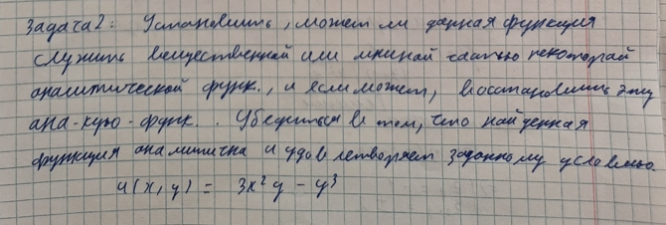 Задача2: Установить, может ли данная функция
служить вещественной или мнимой частью некоторой
аналитической функ., и если может, восстановить эту
ана-кую-функ. . Убедиться в том, что найденная
функция аналитична и удовлетворяет заданному условию.
u(x,y) = 3x²y - y³